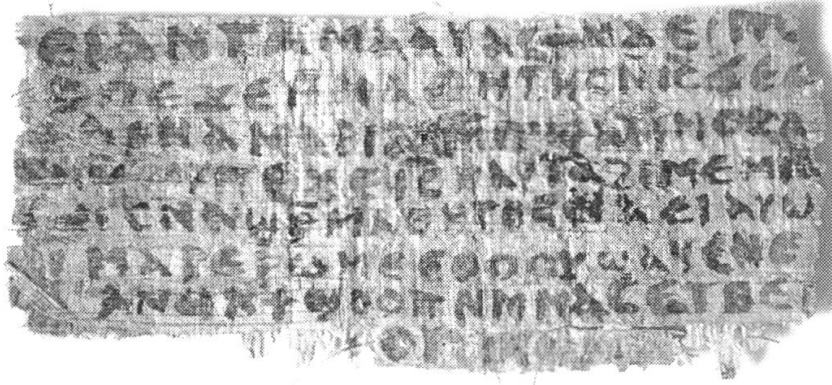 ⲉⲓ ⲁⲛ ⲧⲁⲙⲁⲁⲩ ⲁⲥϯ ⲛⲁⲉⲓ
ⲡⲉϫⲉ ⲙⲙⲁⲑⲏⲧⲏⲥ ⲛⲓⲥ ϫⲉ ⲥ
ⲁⲣⲛⲁ ⲙⲁⲣⲓⲁⲙ
ⲡⲉϫⲉ ⲓⲥ ⲛⲁⲩ ⲧⲁϩⲓⲙⲉ ⲙⲛ
ⲥⲛⲁϣⲣⲙⲁⲑⲏⲧⲏⲥ ⲛⲁⲉⲓ ⲁⲩⲱ
ⲙⲁⲣⲉⲣⲱⲙⲉ ⲉⲑⲟⲟⲩ ϣⲁϥⲉ ⲛⲉ
ⲁⲛⲟⲕ ϯϣⲟⲟⲡ ⲛⲙⲙⲁⲥ ⲉⲧⲃⲉ ⲡ